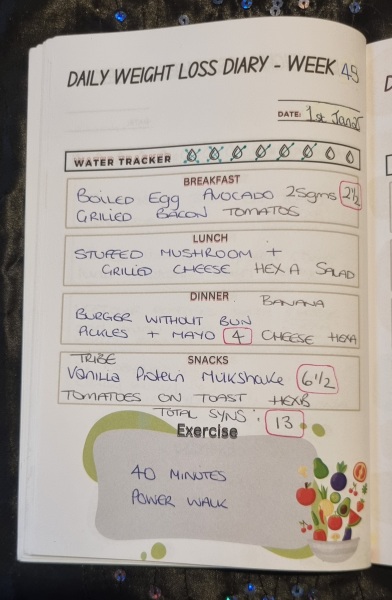 DAILY WEIGHT LOSS DIARY - WEEK 45
DATE: 1st Jan25
WATER TRACKER
BREAKFAST
BOILED EGG AVOCADO 25gms 2½
GRILLED BACON TOMATOS
LUNCH
STUFFED MUSHROOM +
GRILLED CHEESE HEX A SALAD
DINNER BANANA
BURGER WITHOUT BUN
PICKLES + MAYO 4 CHEESE HEXA
SNACKS
TRIBE
Vanilla Protein Milkshake 6½
TOMATOES ON TOAST HEXB
TOTAL SYNS: 13
Exercise
40 MINUTES
POWER WALK